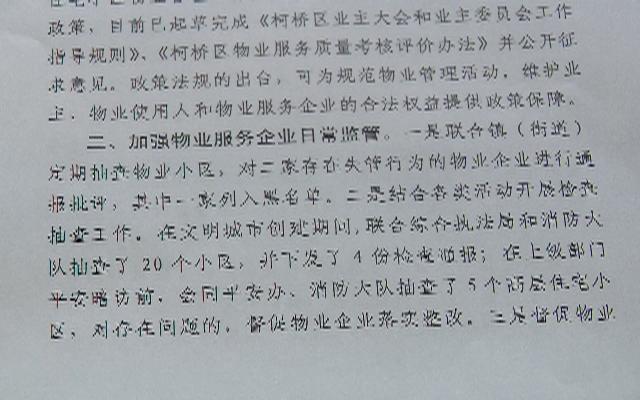 政策，目前已起草完成《柯桥区业主大会和业主委员会工作
指导规则》、《柯桥区物业服务质量考核评价办法》并公开征
求意见。政策法规的出台，可为规范物业管理活动，维护业
主、物业使用人和物业服务企业的合法权益提供政策保障。
二、加强物业服务企业日常监管。一是联合镇（街道）
定期抽查物业小区，对二家存在失管行为的物业企业进行通
报批评，其中一家列入黑名单。二是结合各类活动开展检查
抽查工作。在文明城市创建期间，联合综合执法局和消防大
队抽查了 20 个小区，并下发了 4 份检查通报；在上级部门
平安暗访前，会同平安办、消防大队抽查了 5 个高层住宅小
区，对存在问题的，督促物业企业落实整改。三是督促物业